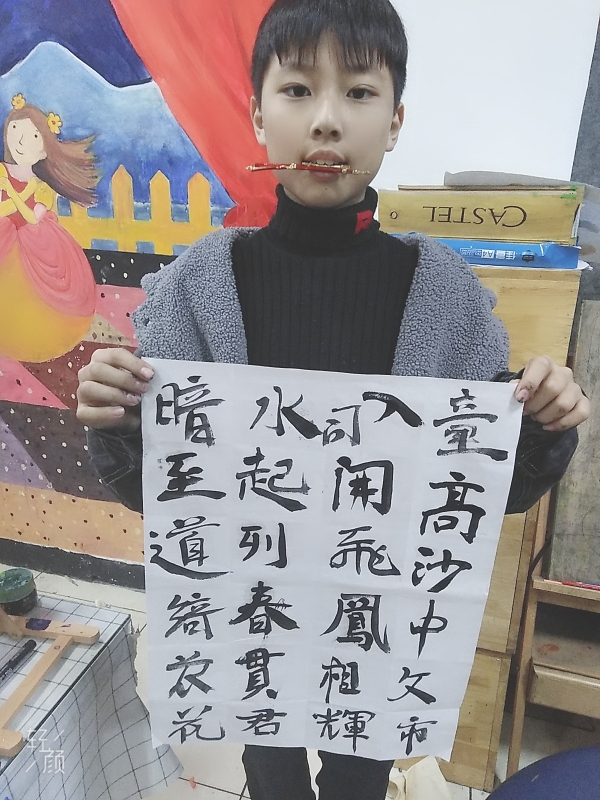 童高沙中文市
入司開飛鳳相輝
水起列春貫君
暗至道衣花
CASTEL
A4
轻颜